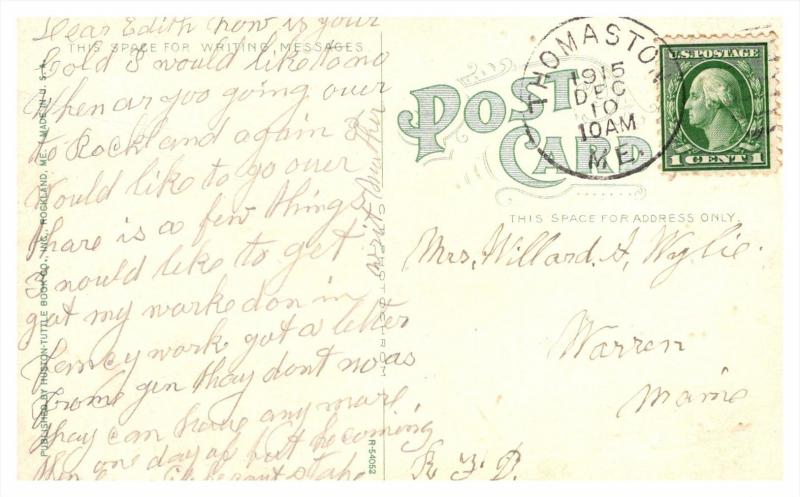 Dear Edith how is your
THIS SPACE FOR WRITING MESSAGES.
Cold I would like to no
When ar yoo going ouer
to Rockland again I
Would like to go ouer
thare is a few things
I would like to get
got my worke don in
Fancy work got a letter
from gin thay dont no as
thay can have any more
than one day of but he coming
writ
PUBLISHED BY HUSTON-TUTTLE BOOK CO., INC., ROCKLAND, ME. MADE IN U.S.A.
R-54052
POST CARD
THOMASTON
1915
DEC
10
10AM
ME.
U.S. POSTAGE
1 CENT 1
THIS SPACE FOR ADDRESS ONLY.
Mrs. Willard A, Wylie.
Warren
Maine
R. F. D.